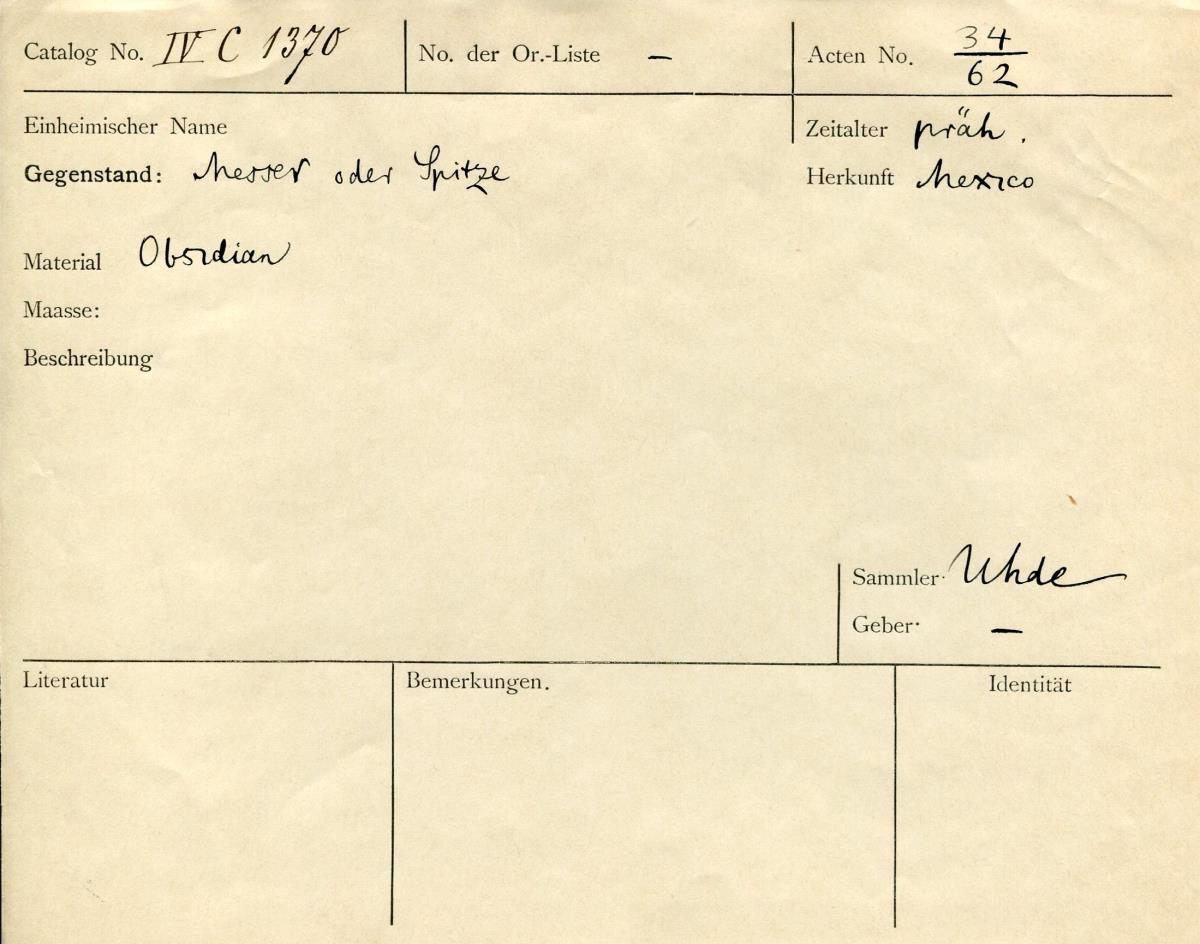 Catalog No. IV C 1370 No. der Or.-Liste — Acten No. 34/62
Einheimischer Name Zeitalter präh.
Gegenstand: Messer oder Spitze Herkunft Mexico
Material Obsidian
Maasse:
Beschreibung
Sammler· Uhde
Geber· —
Literatur Bemerkungen. Identität